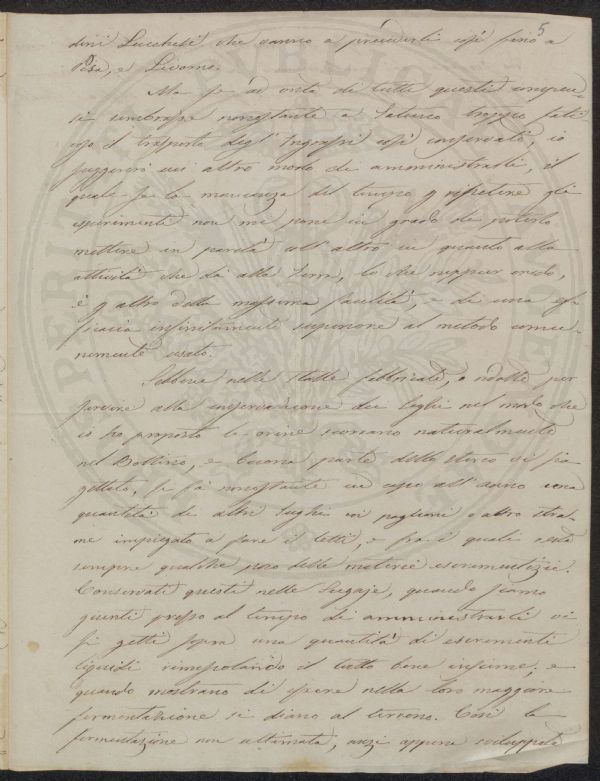 5
dini Lucchesi che vanno a prenderli così fino a
Pisa, e Livorno.
Ma se ad onta di tutti questi
si sembrasse nonostante a Saluzzo troppo fati-
coso il trasporto degl' Ingrassi così conservati, io
suggerirò un altro modo di amministrarli, il
quale se la mancanza del tempo p ripetere gli
esperimenti non mi pone in grado di poterlo
mettere in parità coll' altro in quanto alla
attività che dà alla Terra, lo che neppur credo,
è p altro della massima facilità, e di una ef-
ficacia infinitamente superiore al metodo comu-
nemente usato.
Sebbene nelle stalle fabbricate, o ridotte per
servire alla conservazione dei sughi nel modo che
io ho proposto le orine scorrano naturalmente
nel Bottino, e buona parte dello sterco vi sia
gettato, si fà nonostante in capo all' anno una
quantità di altri sughi coi paglioni o altro stra-
me impiegato a fare i letti, e fra i quali resta
sempre qualche poco delle materie escrementizie.
Conservati questi nelle Sugaje, quando siamo
giunti presso al tempo di amministrarli vi
si getti sopra una quantità di escrementi
liquidi rimestolando il tutto bene insieme, e
quando mostrano di essere nella loro maggiore
fermentazione si diano al terreno. Così la
fermentazione non ultimata, anzi appena sviluppata